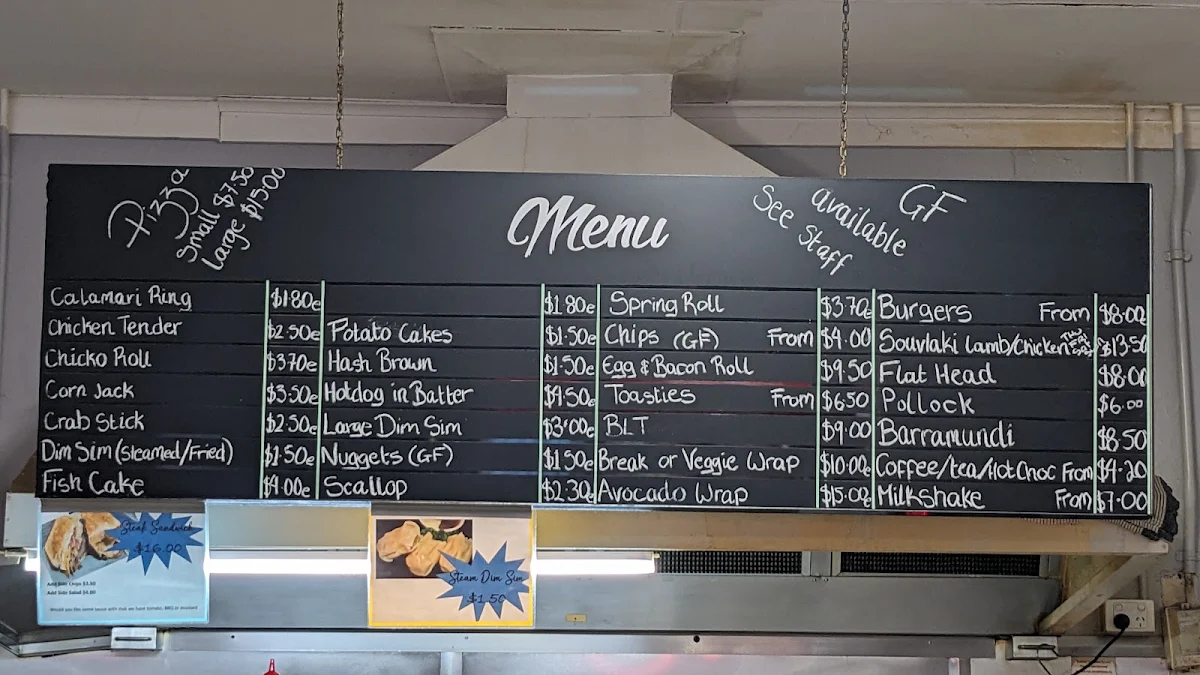 Pizza
Small $7.50
Large $15.00
Menu
GF
available
See Staff
Calamari Ring $1.80e
Chicken Tender $2.50e
Chicko Roll $3.70e
Corn Jack $3.50e
Crab Stick $2.50e
Dim Sim (Steamed/Fried) $1.50e
Fish Cake $4.00e
$1.80e
Potato Cakes $1.50e
Hash Brown $1.50e
Hotdog in Batter $4.50e
Large Dim Sim $3.00e
Nuggets (GF) $1.50e
Scallop $2.30e
Spring Roll $3.70e
Chips (GF) From $4.00
Egg & Bacon Roll $9.50
Toasties From $6.50
BLT $9.00
Break or Veggie Wrap $10.00e
Avocado Wrap $15.00e
Burgers From $8.00e
Souvlaki Lamb/Chicken $13.50
Flat Head $8.00
Pollock $6.00
Barramundi $8.50
Coffee/tea/Hot Choc From $4.20
Milkshake From $7.00
Steak Sandwich
$16.00
Add Side Chips $3.50
Add Side Salad $4.80
Would you like some sauce with that we have tomato, BBQ or mustard
Steam Dim Sim
$1.50